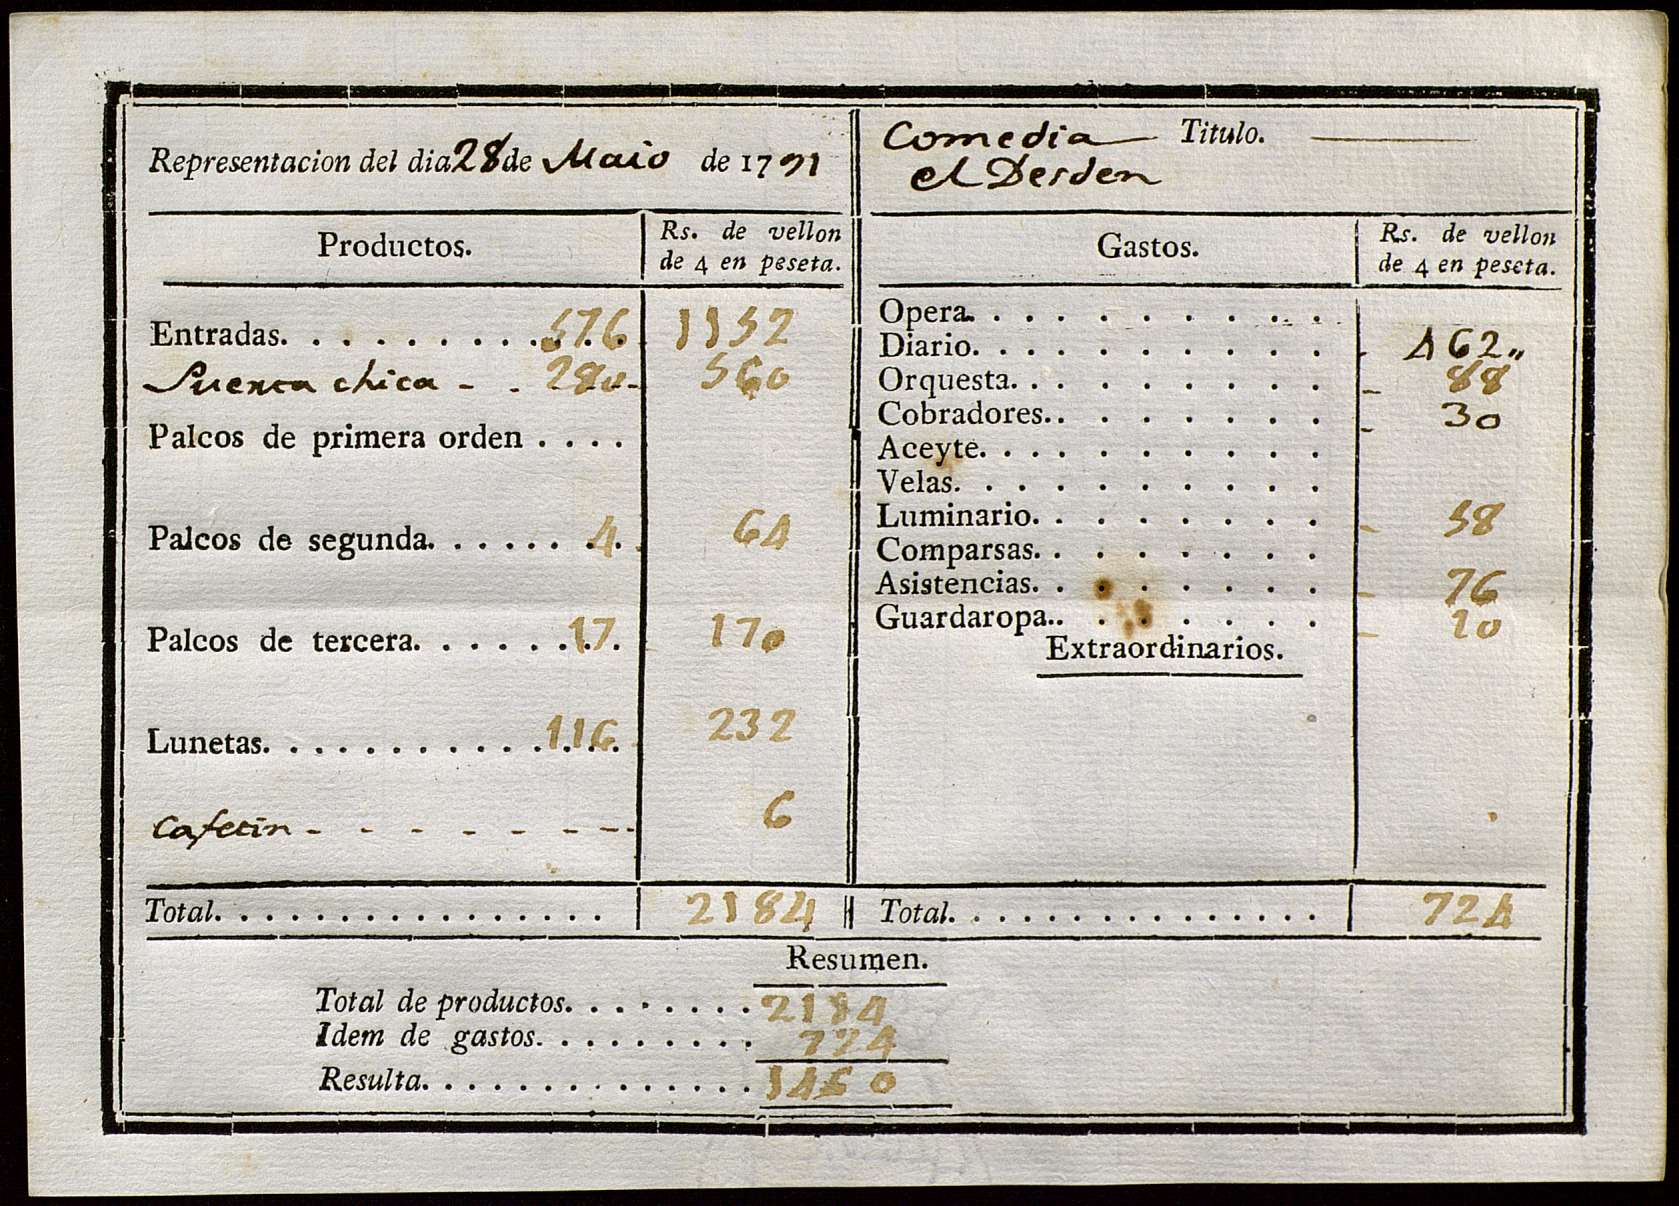 Representacion del dia 28 de Maio de 1791
Comedia Titulo.
el Desden
Productos. Rs. de vellon de 4 en peseta.
Gastos. Rs. de vellon de 4 en peseta.
Entradas. 576 1152
Puerta chica 280 560
Palcos de primera orden
Palcos de segunda. 4 64
Palcos de tercera. 17 170
Lunetas. 116 232
Cafetin 6
Total. 2184
Opera.
Diario. 462
Orquesta. 88
Cobradores. 30
Aceyte.
Velas.
Luminario. 58
Comparsas.
Asistencias. 76
Guardaropa. 10
Extraordinarios.
Total. 724
Resumen.
Total de productos. 2184
Idem de gastos. 724
Resulta. 1460